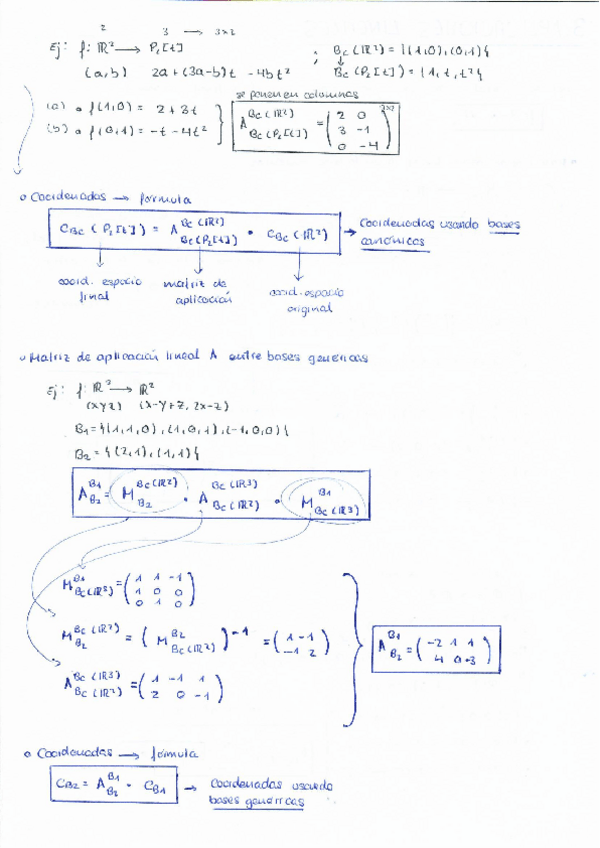 2 3 → 3x2
Ej: f: ℝ² → P₂[t] ; Bc(ℝ²) = {(1,0),(0,1)}
(a,b) 2a+(3a-b)t - 4bt² Bc(P₂[t]) = {1,t,t²}
se ponen en columnas
(a) • f(1,0) = 2+3t
(b) • f(0,1) = -t-4t²
A^{Bc(ℝ²)}_{Bc(P₂[t])} = (2 0; 3 -1; 0 -4) 3x2
• Coordenadas → fórmula
C_{Bc}(P₂[t]) = A^{Bc(ℝ²)}_{Bc(P₂[t])} • C_{Bc}(ℝ²) → Coordenadas usando bases
canónicas
coord. espacio matriz de coord. espacio
final aplicación original
• Matriz de aplicación lineal A entre bases genéricas
Ej: f: ℝ³ → ℝ²
(x y z) (x-y+z, 2x-z)
B₁ = {(1,1,0),(1,0,1),(-1,0,0)}
B₂ = {(2,1),(1,1)}
A^{B1}_{B2} = M^{Bc(ℝ²)}_{B2} • A^{Bc(ℝ3)}_{Bc(ℝ²)} • M^{B1}_{Bc(ℝ3)}
M^{B1}_{Bc(ℝ3)} = (1 1 -1; 1 0 0; 0 1 0)
M^{Bc(ℝ²)}_{B2} = (M^{B2}_{Bc(ℝ²)})^{-1} = (1 -1; -1 2)
A^{B1}_{B2} = (-2 1 1; 4 0 -3)
A^{Bc(ℝ3)}_{Bc(ℝ²)} = (1 -1 1; 2 0 -1)
• Coordenadas → fórmula
C_{B2} = A^{B1}_{B2} • C_{B1} → Coordenadas usando
bases genéricas